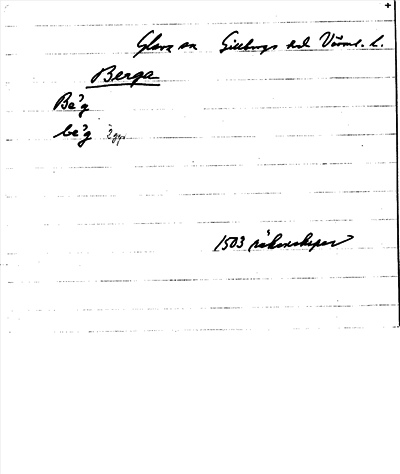 Glava sn Gillbergs hd Värml. l.
Berga
Bæ`g
bæ`g 2 ggr
1503 räkenskaper